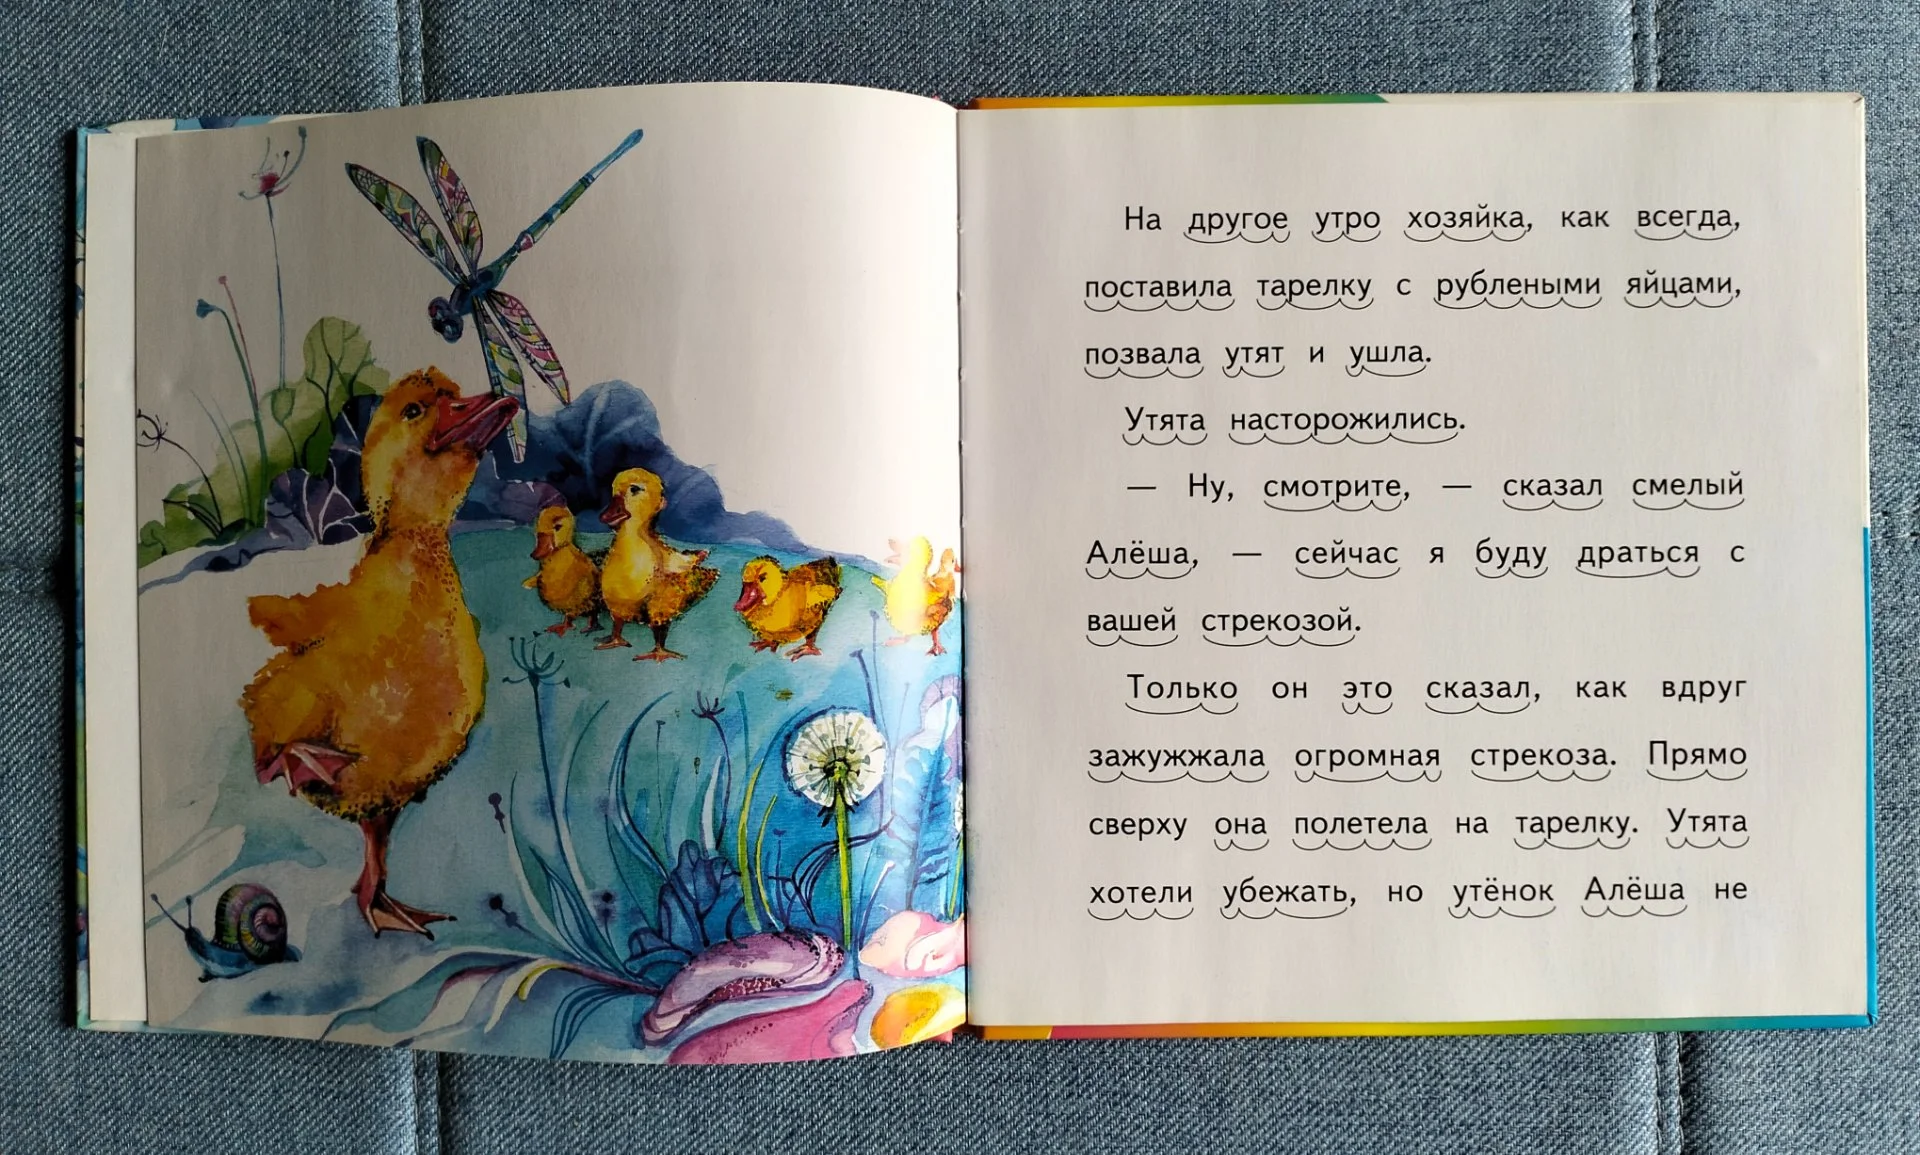 На другое утро хозяйка, как всегда,
поставила тарелку с рублеными яйцами,
позвала утят и ушла.
Утята насторожились.
— Ну, смотрите, — сказал смелый
Алёша, — сейчас я буду драться с
вашей стрекозой.
Только он это сказал, как вдруг
зажужжала огромная стрекоза. Прямо
сверху она полетела на тарелку. Утята
хотели убежать, но утёнок Алёша не